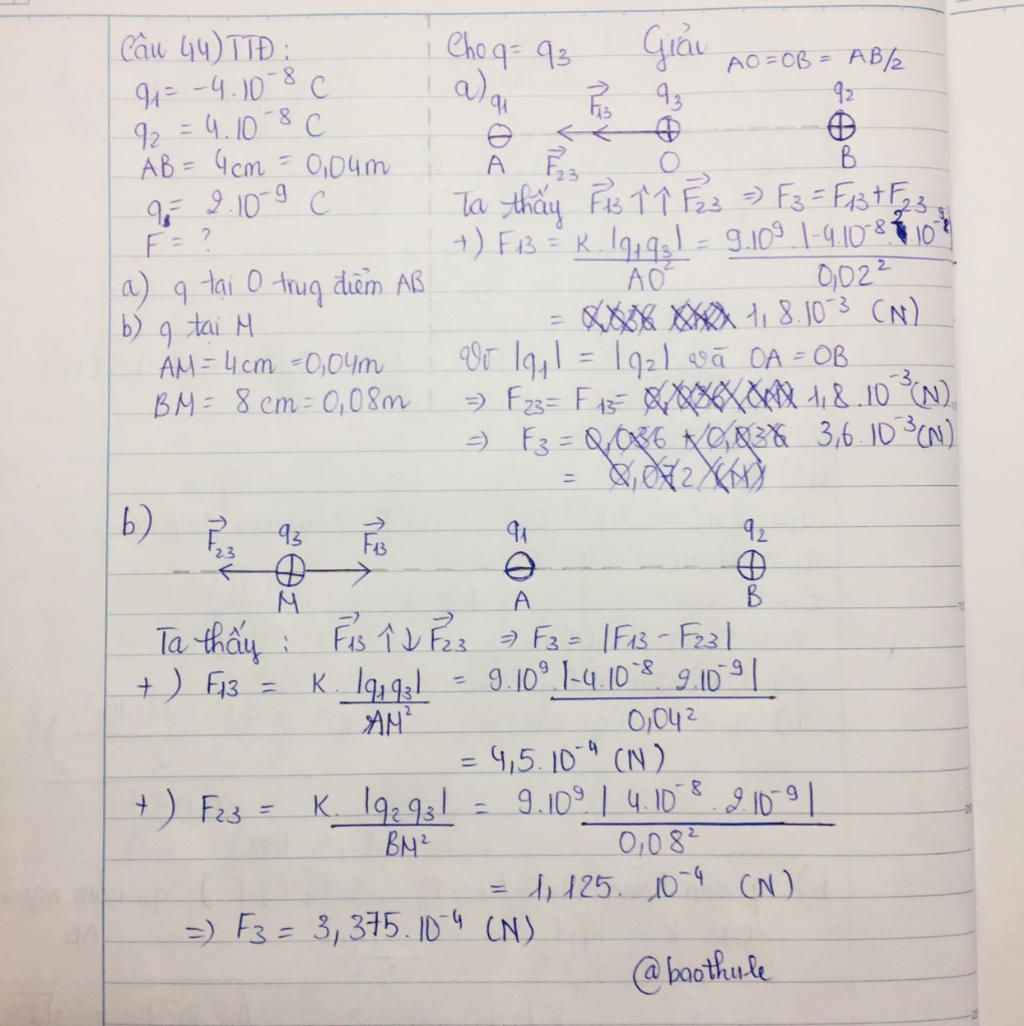 Câu 44) TTĐ:
q₁ = -4.10⁻⁸ C
q₂ = 4.10⁻⁸ C
AB = 4cm = 0,04m
q = 2.10⁻⁹ C
F = ?
a) q tại O trug điểm AB
b) q tại M
AM = 4cm = 0,04m
BM = 8 cm = 0,08m
Cho q = q₃ Giải
AO = OB = AB/2
a) q₁ F₁₃ q₃ q₂
A F₂₃ O B
Ta thấy F₁₃ ↑↑ F₂₃ ⇒ F₃ = F₁₃ + F₂₃
+) F₁₃ = K. |q₁q₃| / AO² = 9.10⁹ .|-4.10⁻⁸. 2.10⁻⁹| / 0,02²
= 1,8.10⁻³ (N)
Vì |q₁| = |q₂| và OA = OB
⇒ F₂₃ = F₁₃ = 1,8.10⁻³ (N)
⇒ F₃ = 3,6.10⁻³ (N)
b) F₂₃ q₃ F₁₃ q₁ q₂
M A B
Ta thấy : F₁₃ ↑↓ F₂₃ ⇒ F₃ = |F₁₃ - F₂₃|
+) F₁₃ = K. |q₁q₃| / AM² = 9.10⁹ .|-4.10⁻⁸. 2.10⁻⁹| / 0,04²
= 4,5.10⁻⁴ (N)
+) F₂₃ = K. |q₂q₃| / BM² = 9.10⁹ .| 4.10⁻⁸ . 2.10⁻⁹| / 0,08²
= 1,125. 10⁻⁴ (N)
⇒ F₃ = 3,375.10⁻⁴ (N)
@baothule